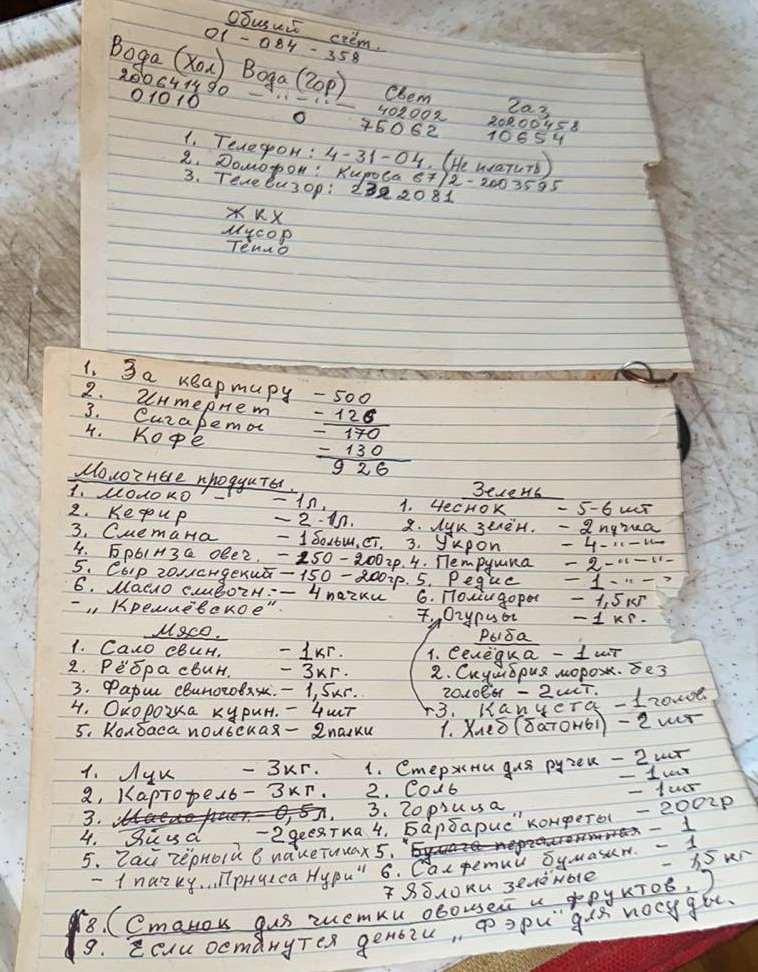 Общий счёт.
01 - 084 - 358
Вода (Хол) Вода (Гор) Свет Газ
200641490 - ‚‚ - ‚‚ - 402002 20200458
01010 0 75062 10654
1. Телефон: 4-31-04. (Не платить)
2. Домофон: Кирова 67/2 - 2003595
3. Телевизор: 2322081
ЖКХ
Мусор
Тепло
1. За квартиру - 500
2. Интернет - 126
3. Сигареты - 170
4. Кофе - 130
926
Молочные продукты.
1. Молоко - 1л.
2. Кефир - 2-1л.
3. Сметана - 1 больш. ст.
4. Брынза овеч. - 250-200гр.
5. Сыр голландский - 150-200гр.
6. Масло сливочн. - 4 пачки
- „Кремлёвское".
Зелень
1. Чеснок - 5-6 шт
2. Лук зелён. - 2 пучка
3. Укроп - 4 - " - " -
4. Петрушка - 2 - " - " -
5. Редис - 1 - " - "
6. Помидоры - 1,5 кг
7. Огурцы - 1 кг.
Мясо.
1. Сало свин. - 1кг.
2. Рёбра свин. - 3кг.
3. Фарш свиноговяж. - 1,5кг.
4. Окорочка курин. - 4шт
5. Колбаса польская - 2палки
Рыба
1. Селёдка - 1 шт
2. Скумбрия морож. без
головы - 2шт.
3. Капуста - 1 голов.
1. Хлеб (батоны) - 2 шт
1. Лук - 3кг.
2. Картофель - 3кг.
3. Масло раст. - 0,5л.
4. Яйца - 2 десятка
5. Чай чёрный в пакетиках
- 1 пачку „Принцеса Нури"
1. Стержни для ручек - 2 шт
2. Соль - 1шт
3. Горчица - 1шт
4. „Барбарис" конфеты - 200гр
5. Бумага пергаментная - 1
6. Салфетки бумажн. - 1
7 Яблоки зелёные - 1,5 кг
8. (Станок для чистки овощей и фруктов.)
9. Если останутся деньги „Фэри" для посуды.